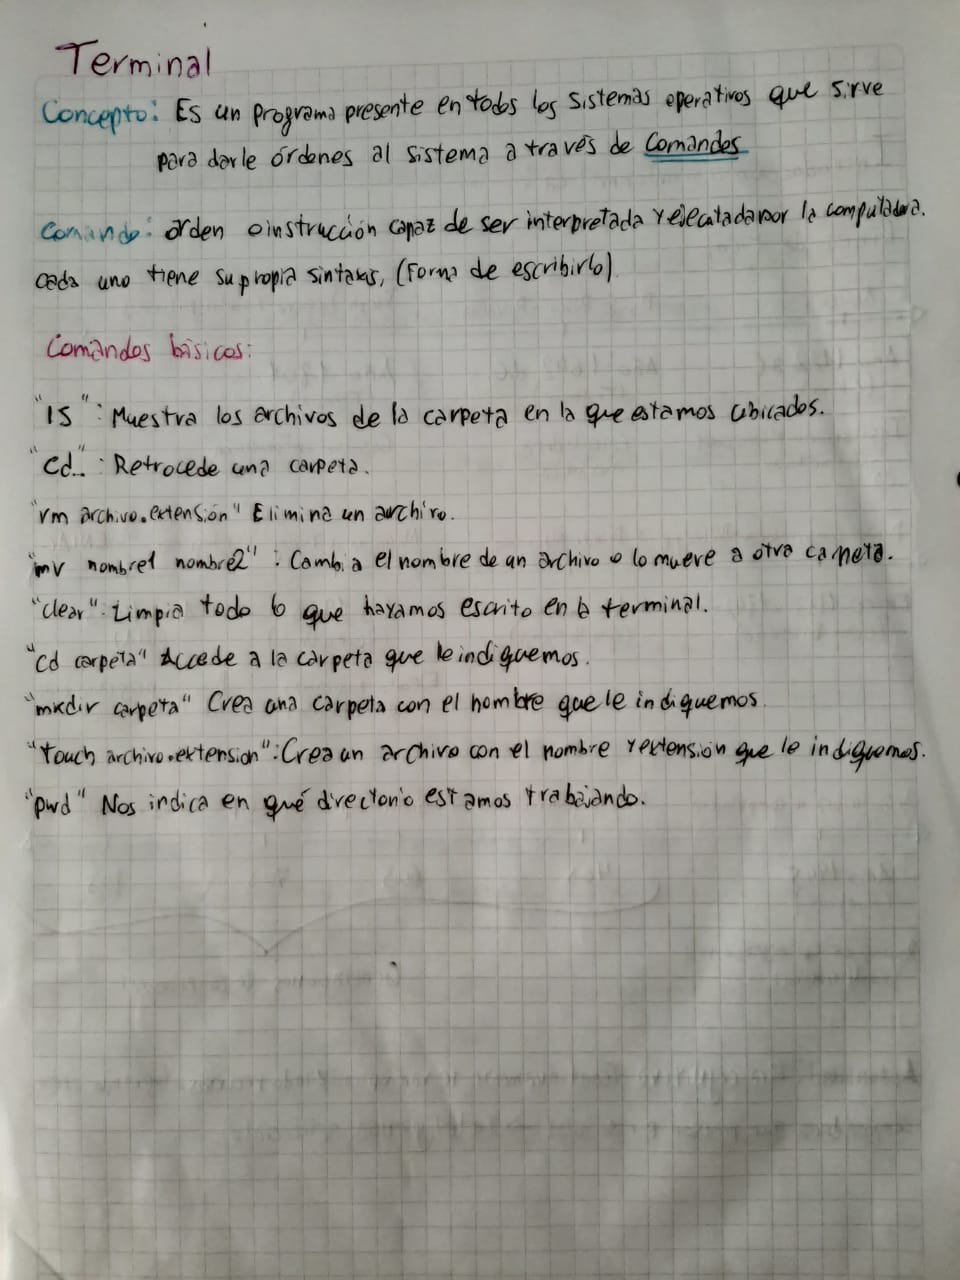 Terminal
Concepto: Es un programa presente en todos los sistemas operativos que sirve
para darle órdenes al sistema a través de Comandos
Comando: orden o instrucción capaz de ser interpretada y ejecutada por la computadora.
cada uno tiene su propia sintaxis, (Forma de escribirlo).
Comandos básicos:
"ls": Muestra los archivos de la carpeta en la que estamos ubicados.
"cd..": Retrocede una carpeta.
"rm archivo.extensión" Elimina un archivo.
"mv nombre1 nombre2": Cambia el nombre de un archivo o lo mueve a otra carpeta.
"clear": Limpia todo lo que hayamos escrito en la terminal.
"cd carpeta" Accede a la carpeta que le indiquemos.
"mkdir carpeta" Crea una carpeta con el nombre que le indiquemos.
"touch archivo.extension": Crea un archivo con el nombre y extensión que le indiquemos.
"pwd" Nos indica en qué directorio estamos trabajando.